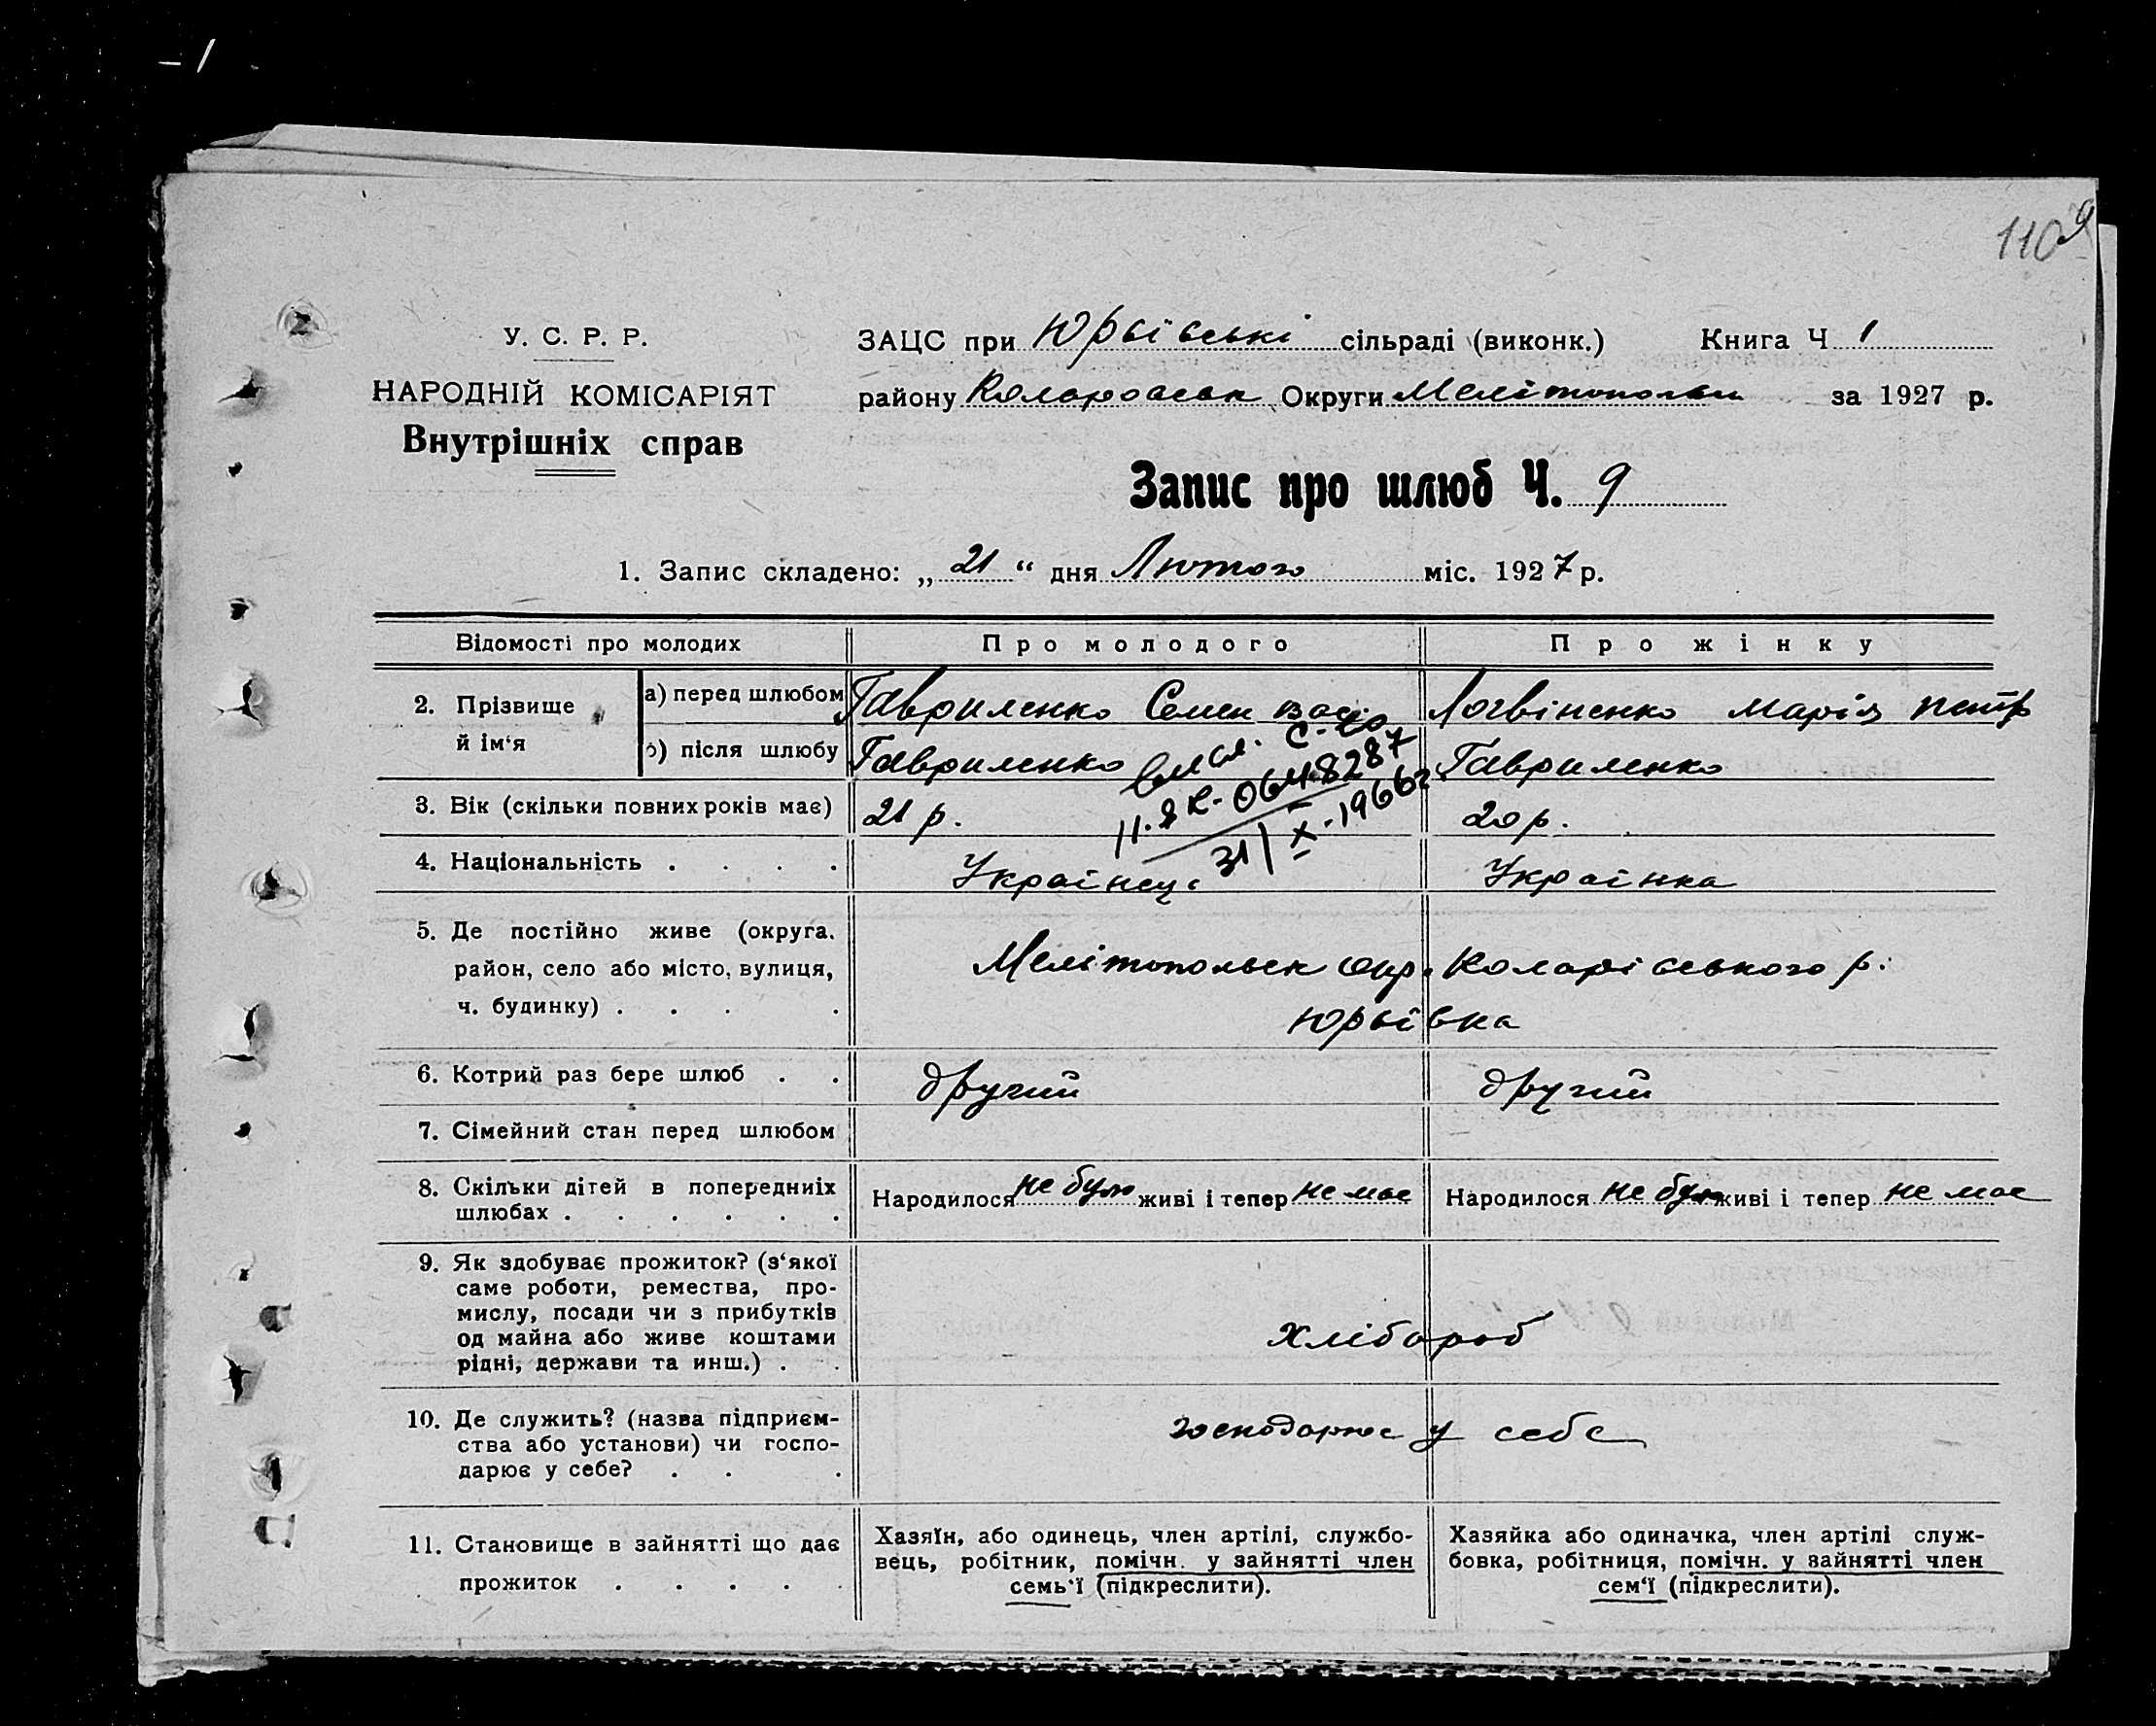 110
У. С. Р. Р.
НАРОДНІЙ КОМІСАРІЯТ
Внутрішніх справ
ЗАЦС при Юрьївські сільраді (виконк.) Книга Ч 1
району Коларовськ Округи Мелітопольськ за 1927 р.
Запис про шлюб Ч. 9
1. Запис складено: „ 21 “ дня Лютого міс. 1927 р.
Відомості про молодих Про молодого Про жінку
2. Прізвище й ім‘я
а) перед шлюбом Гавриленко Семен Вас. Логвіненко Марія Петр
б) після шлюбу Гавриленко Гавриленко
С-во
II-ЯК-0648287
31/X-1966г
3. Вік (скільки повних років має) 21 р. 20 р.
4. Національність . . . . Українець Українка
5. Де постійно живе (округа,
район, село або місто, вулиця,
ч. будинку) . . . .
Мелітопольськ окр. Коларівського р.
Юрьївка
6. Котрий раз бере шлюб . . другий другий
7. Сімейний стан перед шлюбом
8. Скільки дітей в попередниіх
шлюбах . . . . . .
Народилося не було живі і тепер не має Народилося не було живі і тепер не має
9. Як здобуває прожиток? (з‘якої
саме роботи, ремества, про-
мислу, посади чи з прибутків
од майна або живе коштами
рідні, держави та инш.) . .
хлібороб
10. Де служить? (назва підприєм-
ства або установи) чи госпо-
дарює у себе? . . .
господарює у себе
11. Становище в зайнятті що дає
прожиток . . . . .
Хазяїн, або одинець, член артілі, службо-
вець, робітник, помічн. у зайнятті член
семь‘ї (підкреслити).
Хазяйка або одиначка, член артілі служ-
бовка, робітниця, помічн. у зайнятті член
сем‘ї (підкреслити).